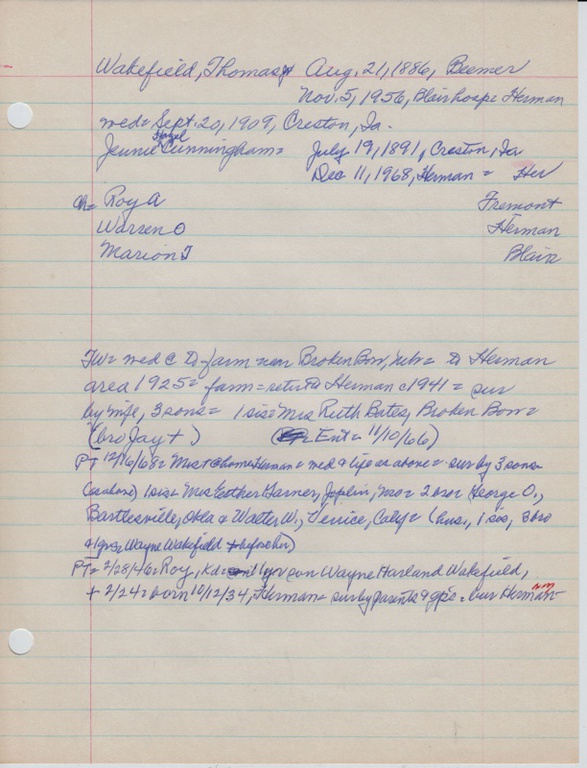 Wakefield, Thomas A Aug. 21, 1886, Beemer
Nov. 5, 1956, Blair hosp = Herman
med = Sept. 20, 1909, Creston, Ia.
Hazel
Jennie Cunningham = July 19, 1891, Creston, Ia
Dec 11, 1968, Herman = Her
Ch = Roy A Fremont
Warren O Herman
Marion J Blair
TW = med C to farm near Broken Bow, Nebr = to Herman
area 1925 = farm = ret to Herman c 1941 = sur
by wife, 3 sons = 1 sis = Mrs Ruth Bates, Broken Bow =
(bro Jay +) Ent = 11/10/66)
PT 12/16/68 = Mrs + @ home Herman = med & life as above = sur by 3 sons
(as above) 1 sis = Mrs Esther Garner, Joplin, Mo = 2 bro = George O.,
Bartlesville, Okla & Walter W., Venice, Calif = (hus., 1 sis, 3 bro
& 1 gr s Wayne Wakefield + before her)
PT = 2/28/46 = Roy, Kd = 11 yr son Wayne Harland Wakefield,
+ 2/24 = born 10/12/34, Herman = sur by parents & gps = bur Herman